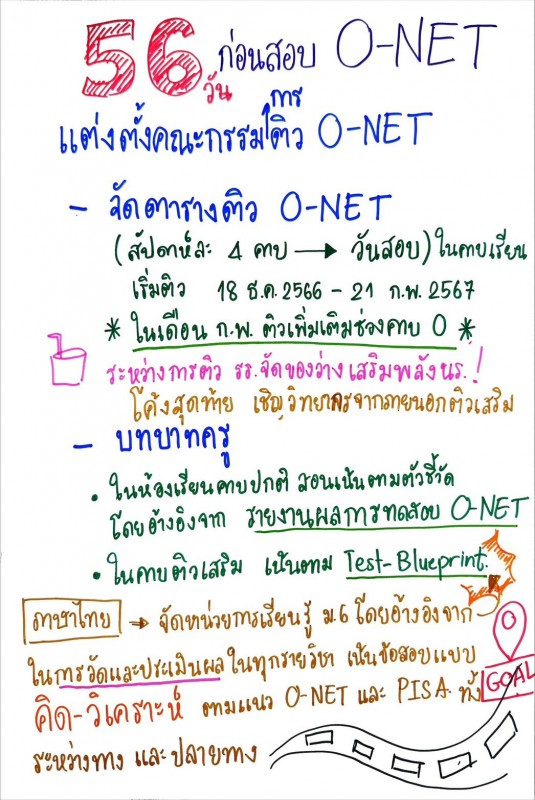 56 วัน ก่อนสอบ O-NET
แต่งตั้งคณะกรรมการติว O-NET
- จัดตารางติว O-NET
(สัปดาห์ละ 4 คาบ → วันสอบ) ในคาบเรียน
เริ่มติว 18 ธ.ค. 2566 - 21 ก.พ. 2567
* ในเดือน ก.พ. ติวเพิ่มเติมช่วงคาบ 0 *
ระหว่างการติว รร. จัดของว่างเสริมพลังนร.!
โค้งสุดท้าย เชิญวิทยากรจากภายนอกติวเสริม
- บทบาทครู
• ในห้องเรียนคาบปกติ สอนเน้นตามตัวชี้วัด
โดยอ้างอิงจาก รายงานผลการทดสอบ O-NET
• ในคาบติวเสริม เน้นตาม Test-Blueprint.
ภาษาไทย → จัดหน่วยการเรียนรู้ ม.6 โดยอ้างอิงจาก
ในการวัดและประเมินผล ในทุกรายวิชา เน้นข้อสอบแบบ
คิด-วิเคราะห์ ตามแนว O-NET และ PISA ทั้ง
ระหว่างทาง และปลายทาง
GOAL